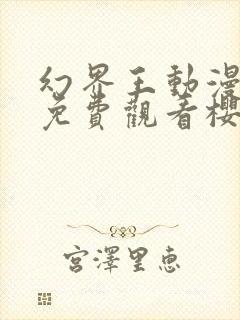 幻界王動漫
免費觀看櫻
宮澤里惠